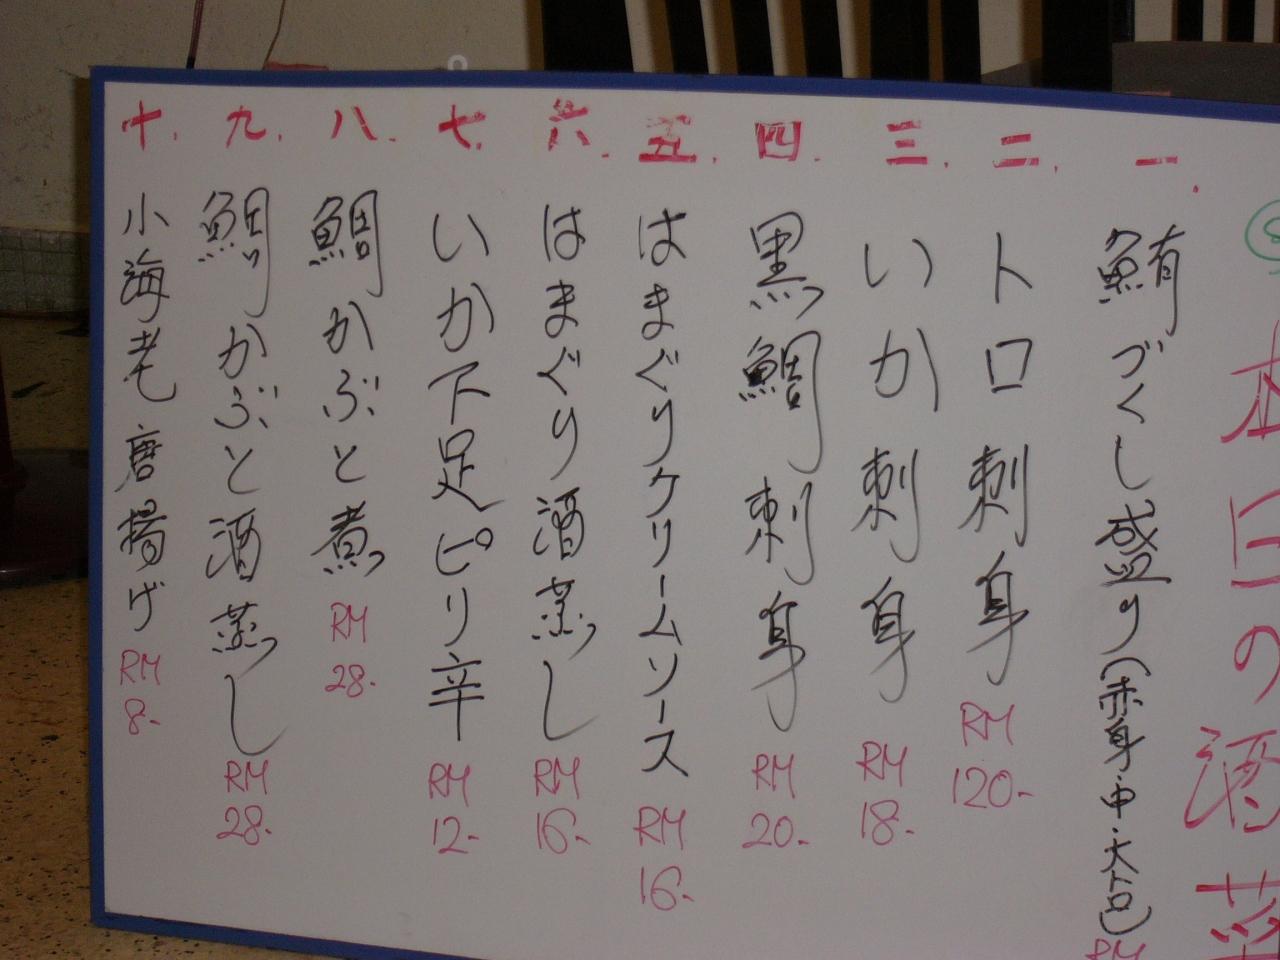 本日の酒菜
一. 鮪づくし盛り(赤身・中・大トロ) RM
二. トロ刺身 RM 120-
三. いか刺身 RM 18-
四. 黒鯛刺身 RM 20-
五. はまぐりクリームソース RM 16-
六. はまぐり酒蒸し RM 16-
七. いか下足ピリ辛 RM 12-
八. 鯛かぶと煮 RM 28-
九. 鯛かぶと酒蒸し RM 28-
十. 小海老唐揚げ RM 8-